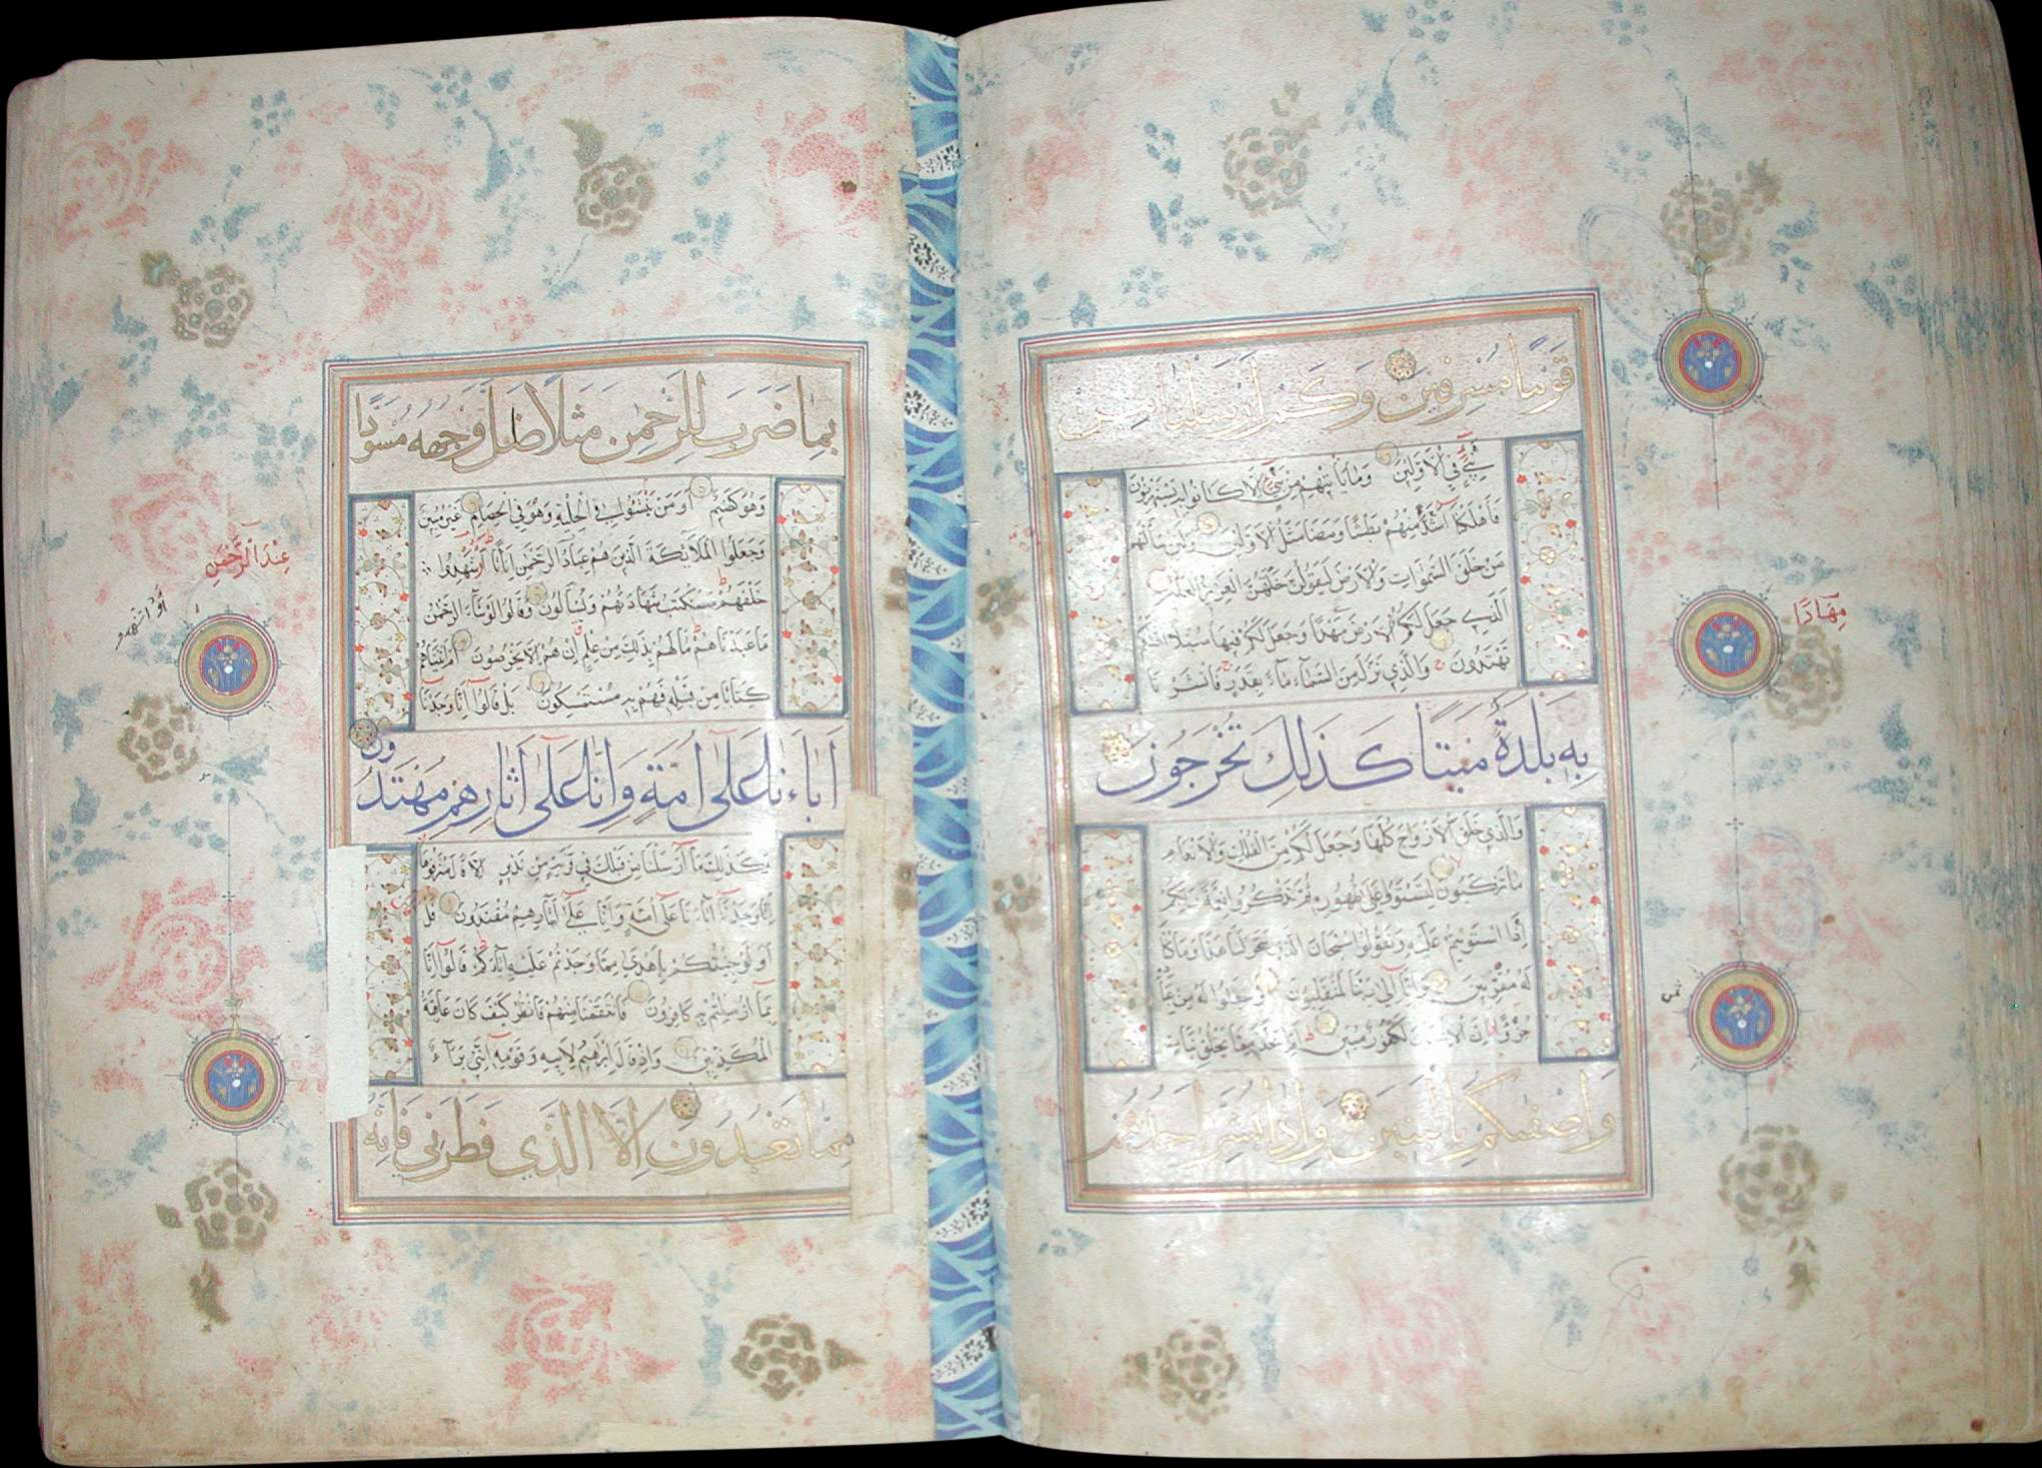 قَوْمًا مُسْرِفِينَ وَكَمْ أَرْسَلْنَا مِن
نَبِيٍّ فِي الْأَوَّلِينَ وَمَا يَأْتِيهِمْ مِنْ نَبِيٍّ إِلَّا كَانُوا بِهِ يَسْتَهْزِئُونَ
فَأَهْلَكْنَا أَشَدَّ مِنْهُمْ بَطْشًا وَمَضَى مَثَلُ الْأَوَّلِينَ وَلَئِنْ سَأَلْتَهُمْ
مَنْ خَلَقَ السَّمٰوَاتِ وَالْأَرْضَ لَيَقُولُنَّ خَلَقَهُنَّ الْعَزِيزُ الْعَلِيمُ
الَّذِي جَعَلَ لَكُمُ الْأَرْضَ مَهْدًا وَجَعَلَ لَكُمْ فِيهَا سُبُلًا لَعَلَّكُمْ
تَهْتَدُونَ وَالَّذِي نَزَّلَ مِنَ السَّمَاءِ مَاءً بِقَدَرٍ فَأَنْشَرْنَا
بِهِ بَلْدَةً مَيْتًا كَذٰلِكَ تُخْرَجُونَ
وَالَّذِي خَلَقَ الْأَزْوَاجَ كُلَّهَا وَجَعَلَ لَكُمْ مِنَ الْفُلْكِ وَالْأَنْعَامِ
مَا تَرْكَبُونَ لِتَسْتَوُوا عَلَى ظُهُورِهِ ثُمَّ تَذْكُرُوا نِعْمَةَ رَبِّكُمْ
إِذَا اسْتَوَيْتُمْ عَلَيْهِ وَتَقُولُوا سُبْحَانَ الَّذِي سَخَّرَ لَنَا هٰذَا وَمَا كُنَّا
لَهُ مُقْرِنِينَ وَإِنَّا إِلَى رَبِّنَا لَمُنْقَلِبُونَ وَجَعَلُوا لَهُ مِنْ عِبَادِهِ
جُزْءًا إِنَّ الْإِنْسَانَ لَكَفُورٌ مُبِينٌ أَمِ اتَّخَذَ مِمَّا يَخْلُقُ بَنَاتٍ
وَأَصْفٰىكُمْ بِالْبَنِينَ وَإِذَا بُشِّرَ أَحَدُهُمْ
مِهَادًا
ثمن
بِمَا ضَرَبَ لِلرَّحْمٰنِ مَثَلًا ظَلَّ وَجْهُهُ مُسْوَدًّا
وَهُوَ كَظِيمٌ أَوَمَنْ يُنَشَّؤُا فِي الْحِلْيَةِ وَهُوَ فِي الْخِصَامِ غَيْرُ مُبِينٍ
وَجَعَلُوا الْمَلَائِكَةَ الَّذِينَ هُمْ عِبَادُ الرَّحْمٰنِ إِنَاثًا أَشَهِدُوا
خَلْقَهُمْ سَتُكْتَبُ شَهَادَتُهُمْ وَيُسْأَلُونَ وَقَالُوا لَوْ شَاءَ الرَّحْمٰنُ
مَا عَبَدْنَاهُمْ مَا لَهُمْ بِذٰلِكَ مِنْ عِلْمٍ إِنْ هُمْ إِلَّا يَخْرُصُونَ أَمْ آتَيْنَاهُمْ
كِتَابًا مِنْ قَبْلِهِ فَهُمْ بِهِ مُسْتَمْسِكُونَ بَلْ قَالُوا إِنَّا وَجَدْنَا
آبَاءَنَا عَلٰى أُمَّةٍ وَإِنَّا عَلٰى آثَارِهِمْ مُهْتَدُونَ
وَكَذٰلِكَ مَا أَرْسَلْنَا مِنْ قَبْلِكَ فِي قَرْيَةٍ مِنْ نَذِيرٍ إِلَّا قَالَ مُتْرَفُوهَا
إِنَّا وَجَدْنَا آبَاءَنَا عَلَى أُمَّةٍ وَإِنَّا عَلَى آثَارِهِمْ مُقْتَدُونَ قُلْ
أَوَلَوْ جِئْتُكُمْ بِأَهْدَى مِمَّا وَجَدْتُمْ عَلَيْهِ آبَاءَكُمْ قَالُوا إِنَّا
بِمَا أُرْسِلْتُمْ بِهِ كَافِرُونَ فَانْتَقَمْنَا مِنْهُمْ فَانْظُرْ كَيْفَ كَانَ عَاقِبَةُ
الْمُكَذِّبِينَ وَإِذْ قَالَ إِبْرٰهِيمُ لِأَبِيهِ وَقَوْمِهِ إِنَّنِي بَرَاءٌ
مِمَّا تَعْبُدُونَ إِلَّا الَّذِي فَطَرَنِي فَإِنَّهُ
عِنْدَ الرَّحْمٰنِ